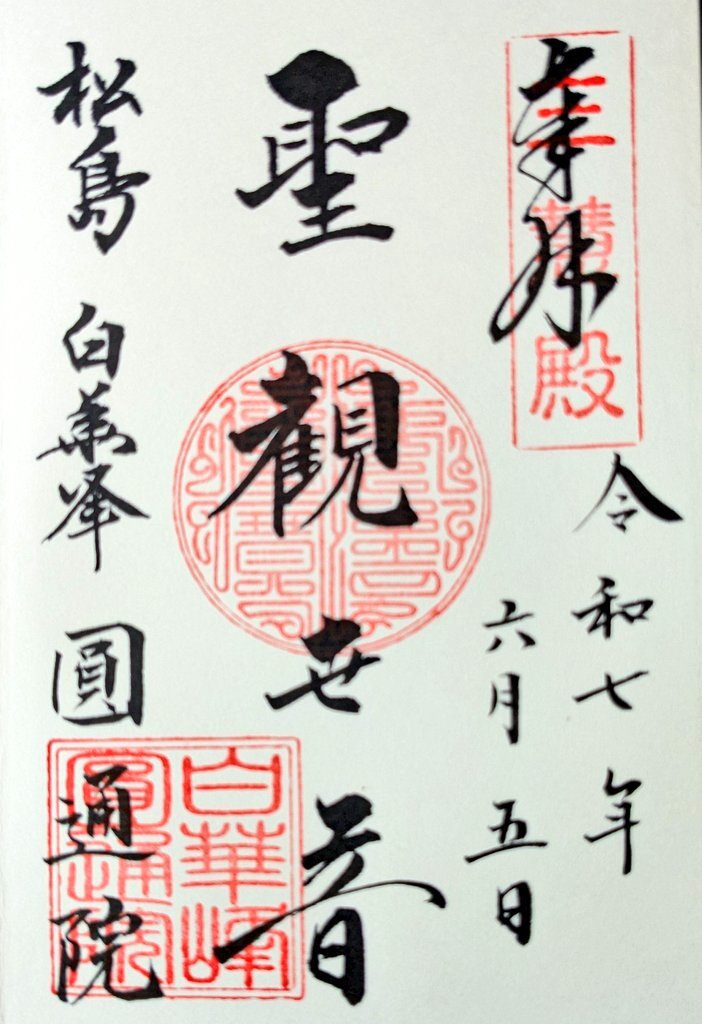 奉拝
三慧殿
令和七年
六月五日
聖觀世音
松島 白華峯 圓通院
白華峰
圓通院